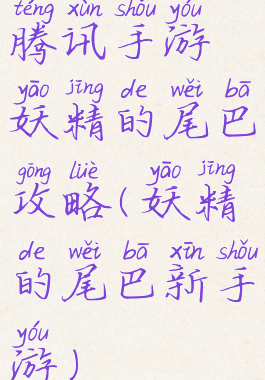 téng xùn shǒu yóu
腾讯手游
yāo jīng de wěi bā
妖精的尾巴
gōng lüè yāo jīng
攻略(妖精
de wěi bā xīn shǒu
的尾巴新手
yóu
游)